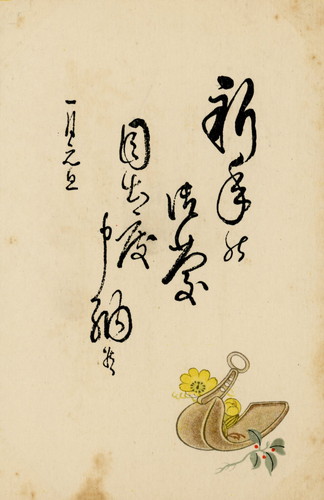 新年の
御慶
目出度
申納候
一月元旦